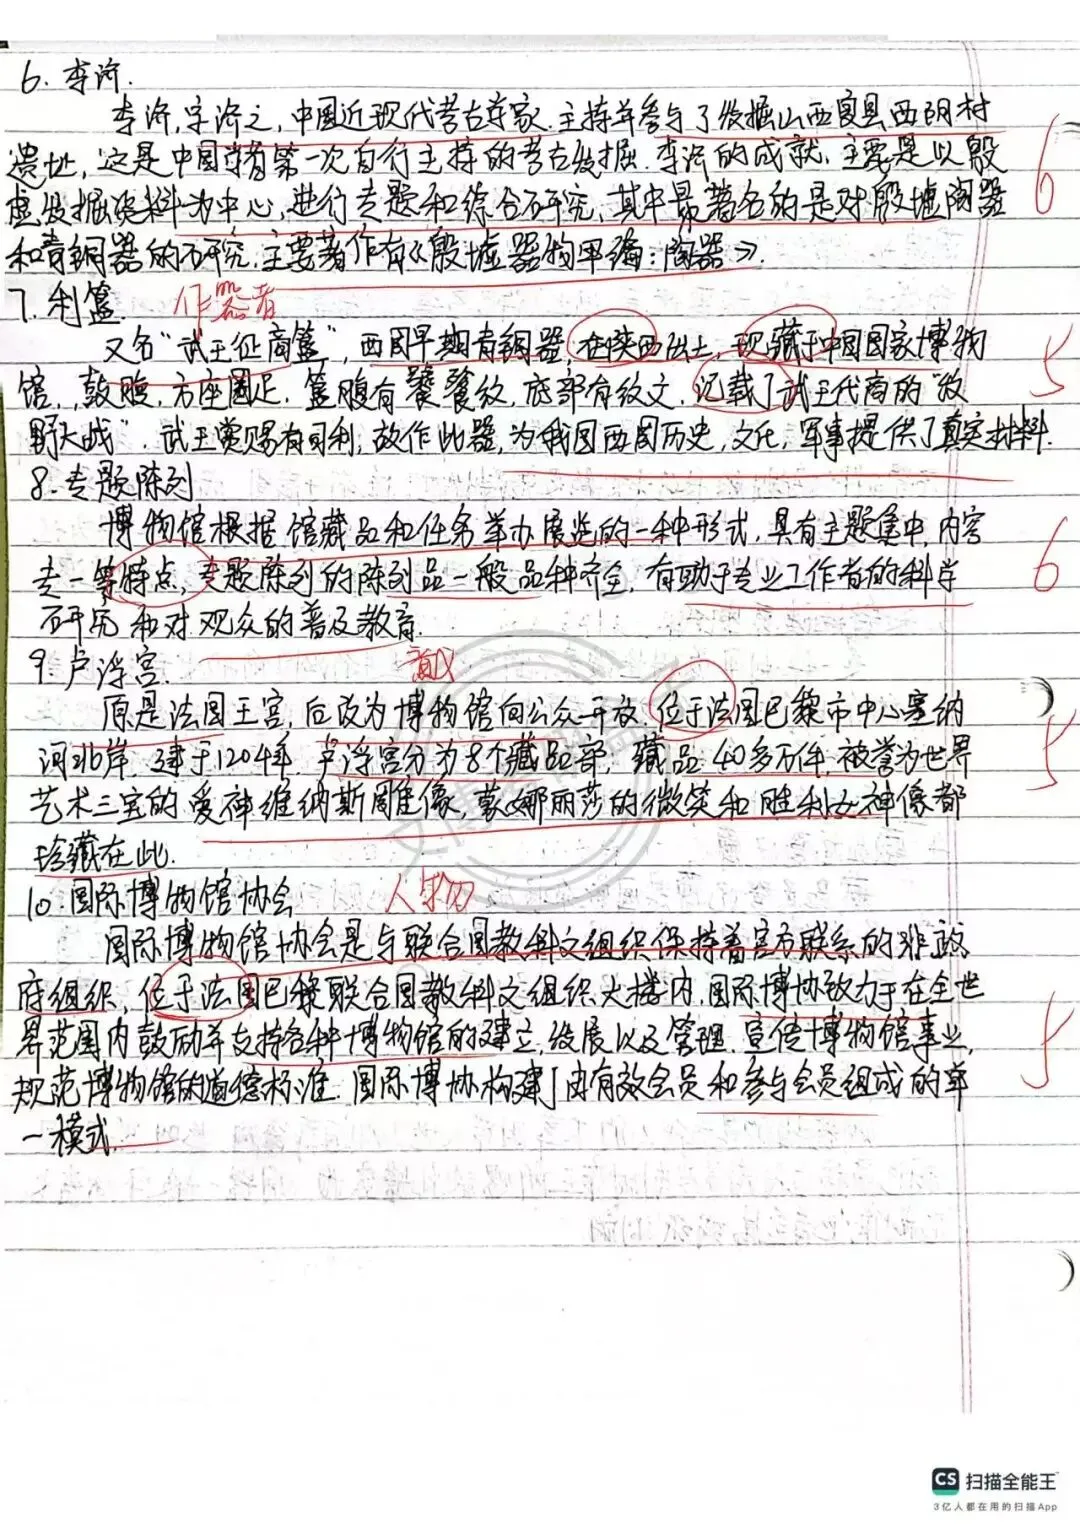 6. 李济.
李济,字济之,中国近现代考古专家.主持并参与了发掘山西夏县西阴村
遗址,这是中国学者第一次自行主持的考古发掘.李济的成就,主要是以殷
虚发掘资料为中心,进行专题和综合研究,其中最著名的是对殷墟陶器
和青铜器的研究.主要著作有《殷墟器物甲编:陶器》.
7. 利簋. 作器者
又名“武王征商簋”,西周早期青铜器,在陕西出土,现藏于中国国家博物
馆,鼓腹,方座圈足.簋腹有饕餮纹,底部有纹文.记载了武王伐商的“牧
野大战”.武王赏赐有司利,故作此器,为我国西周历史,文化,军事提供了真实材料.
6
5
8.专题陈列
博物馆根据馆藏品和任务举办展览的一种形式,具有主题集中,内容
专一等特点,专题陈列的陈列品一般品种齐全.有助于专业工作者的科学
研究和对观众的普及教育.
6
9.卢浮宫.
原是法国王宫,后改为博物馆向公众开放.位于法国巴黎市中心塞纳
河北岸.建于1204年.卢浮宫分为8个藏品部,藏品40多万件,被誉为世界
艺术三宝的爱神维纳斯雕像,蒙娜丽莎的微笑和胜利女神像都
珍藏在此.
5
10.国际博物馆协会
国际博物馆协会是与联合国教科文组织保持着官方联系的非政
府组织,位于法国巴黎联合国教科文组织大楼内.国际博协致力于在全世
界范围内鼓励并支持各种博物馆的建立,发展以及管理.宣传博物馆事业,
规范博物馆的道德标准.国际博协构建了由有效会员和参与会员组成的单
一模式.
5
CS 扫描全能王
3亿人都在用的扫描App